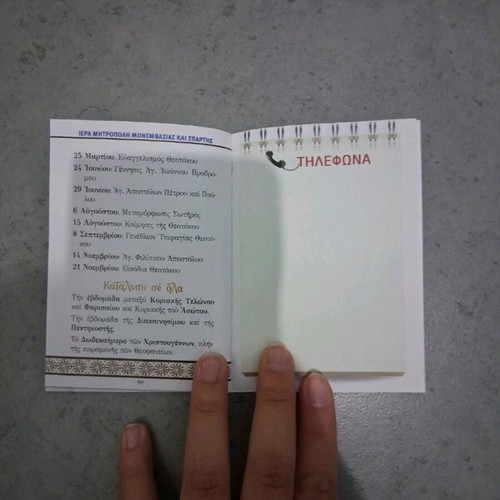 ΙΕΡΑ ΜΗΤΡΟΠΟΛΗ ΜΟΝΕΜΒΑΣΙΑΣ ΚΑΙ ΣΠΑΡΤΗΣ
25 Μαρτίου: Εὐαγγελισμός Θεοτόκου
24 Ἰουνίου: Γέννησις Ἁγ. Ἰωάννου Προδρό-
μου
29 Ἰουνίου: Ἁγ. Ἀποστόλων Πέτρου καί Παύ-
λου
6 Αὐγούστου: Μεταμόρφωσις Σωτῆρος
15 Αὐγούστου: Κοίμησις τῆς Θεοτόκου
8 Σεπτεμβρίου: Γενέθλιον Ὑπεραγίας Θεοτό-
κου
14 Νοεμβρίου: Ἁγ. Φιλίππου Ἀποστόλου
21 Νοεμβρίου: Εἰσόδια Θεοτόκου
Κατάλυση σέ ὅλα
Τήν ἑβδομάδα μεταξύ Κυριακῆς Τελώνου
καί Φαρισαίου καί Κυριακῆς τοῦ Ἀσώτου.
Τήν ἑβδομάδα τῆς Διακαινησίμου καί τῆς
Πεντηκοστῆς.
Τό Δωδεκαήμερο τῶν Χριστουγέννων, πλήν
τῆς παραμονῆς τῶν Θεοφανείων.
ΤΗΛΕΦΩΝΑ